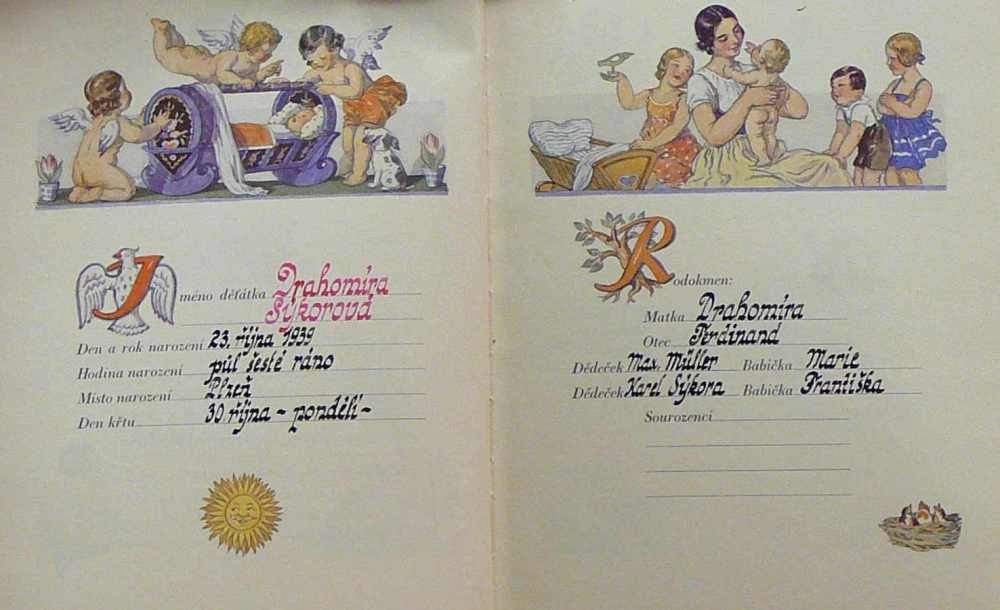 Jméno děťátka Drahomíra
Sýkorová
Den a rok narození 23. října 1939
Hodina narození půl šesté ráno
Místo narození Plzeň
Den křtu 30 října - pondělí -
Rodokmen:
Matka Drahomíra
Otec Ferdinand
Dědeček Max. Müller Babička Marie
Dědeček Karel Sýkora Babička Františka
Sourozenci